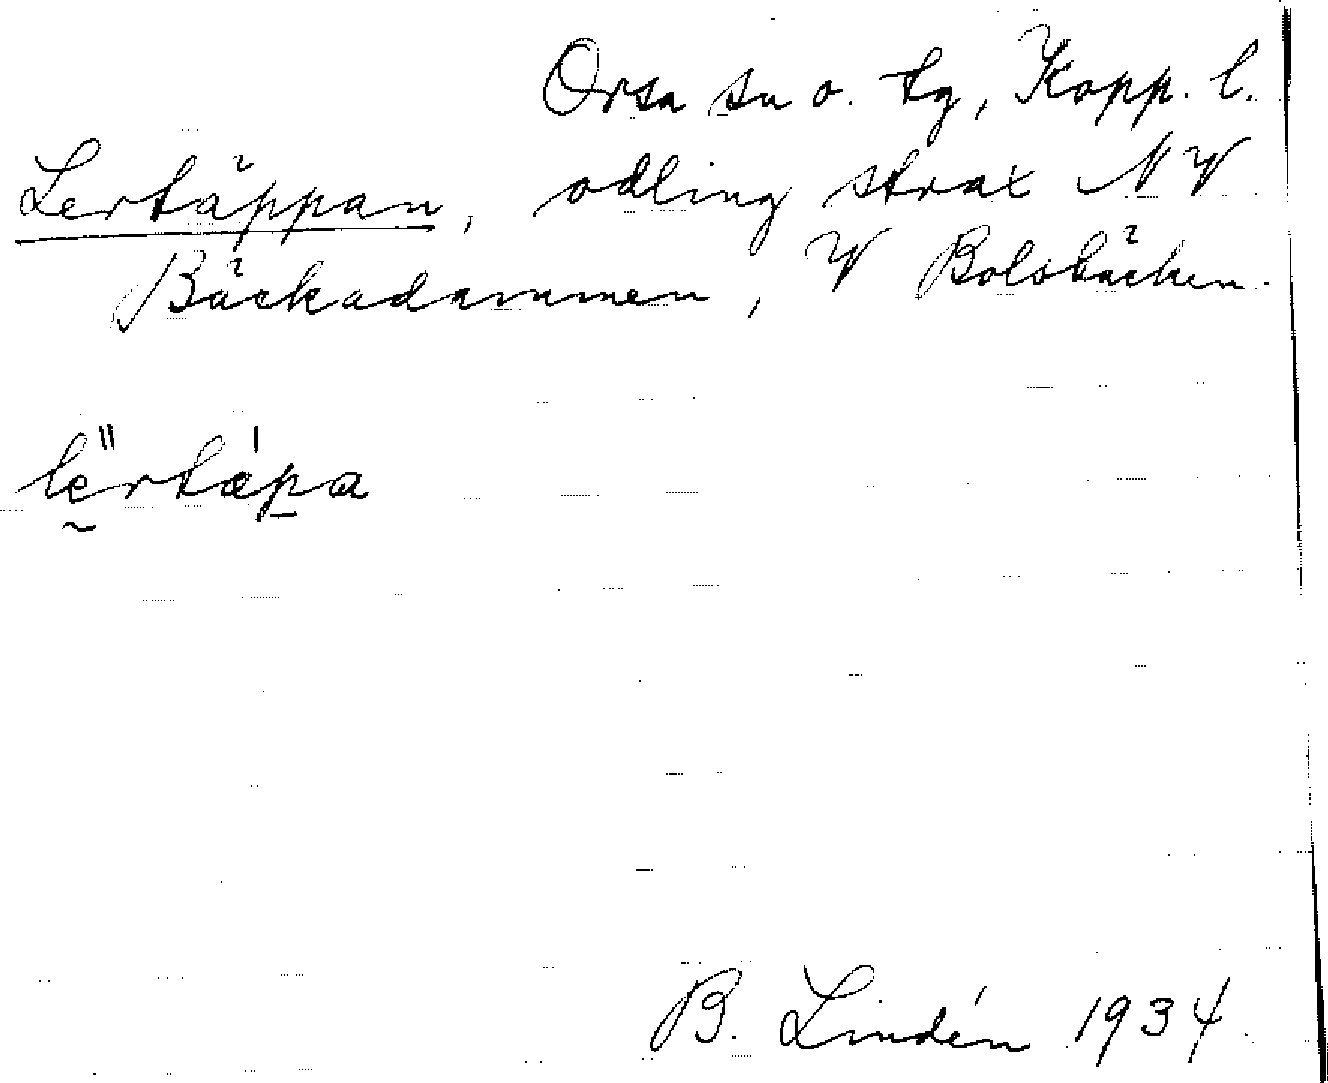 Orsa sn o. tg, Kopp. l.
Lertäppan, odling strax NV
Bäckadammen, V Bolsbäcken.
lèrtǽpa
B. Lindén 1934